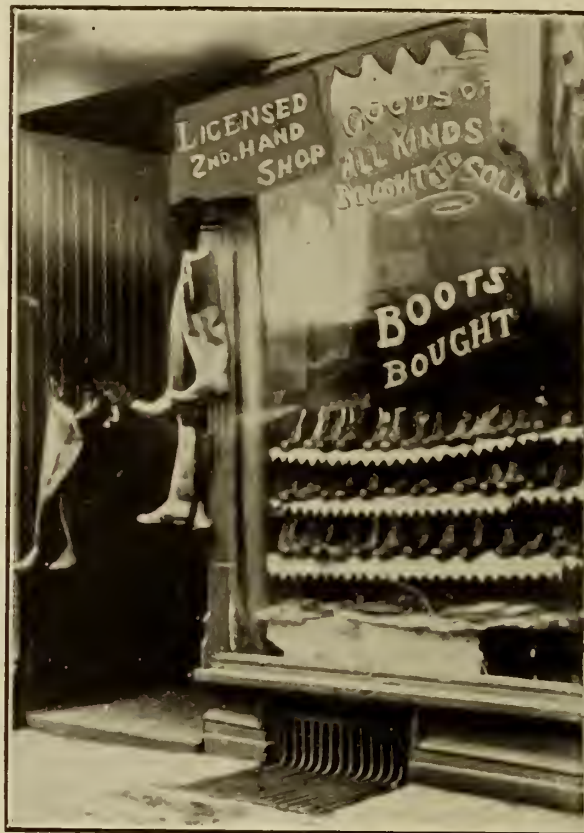 LICENSED
2ND. HAND
SHOP
GOODS OF
ALL KINDS
BOUGHT & SOLD
BOOTS
BOUGHT